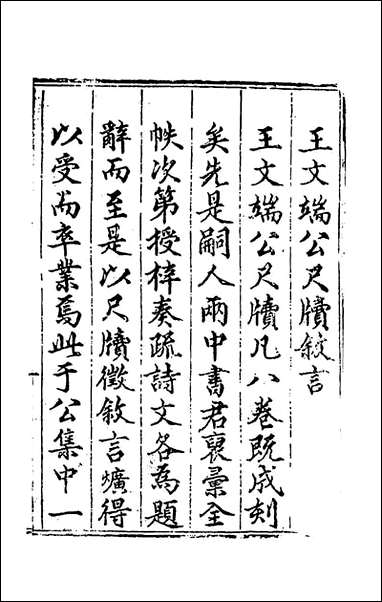 王文端公尺牘敘言
王文端公尺牘凡八卷既成刻
矣先是嗣人兩中書君裒彙全
帙次第授梓奏疏詩文各為題
辭而至是以尺牘徵敘言爌得
以受而卒業焉此于公集中一